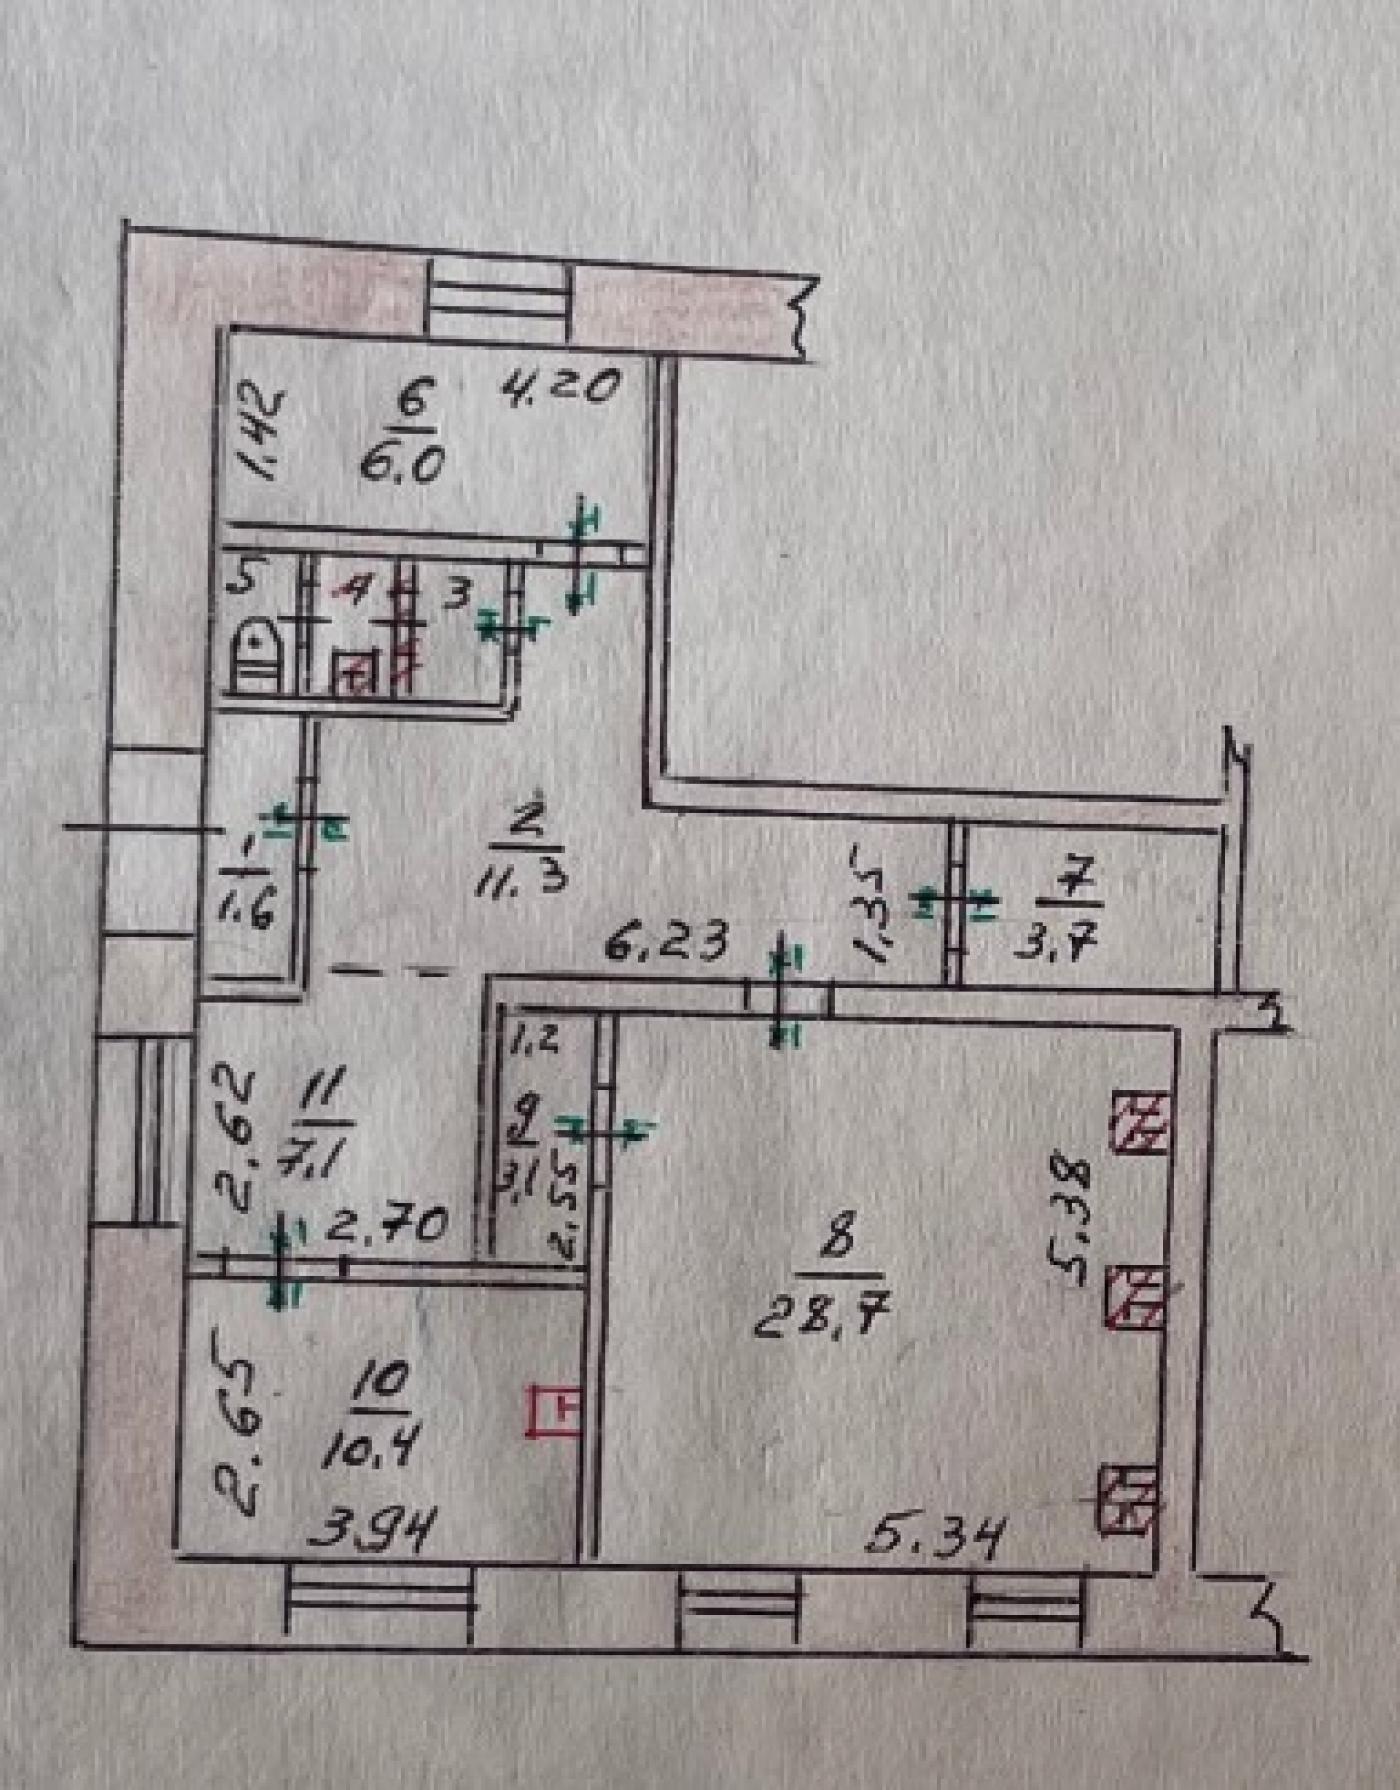 4.20
1.42
6
6.0
5
4
3
2
11.3
1
1.6
1.35
7
3.7
6.23
1.2
2.62
11
7.1
9
3.1
2.55
2.70
5.38
8
28.7
2.65
10
10.4
3.94
5.34